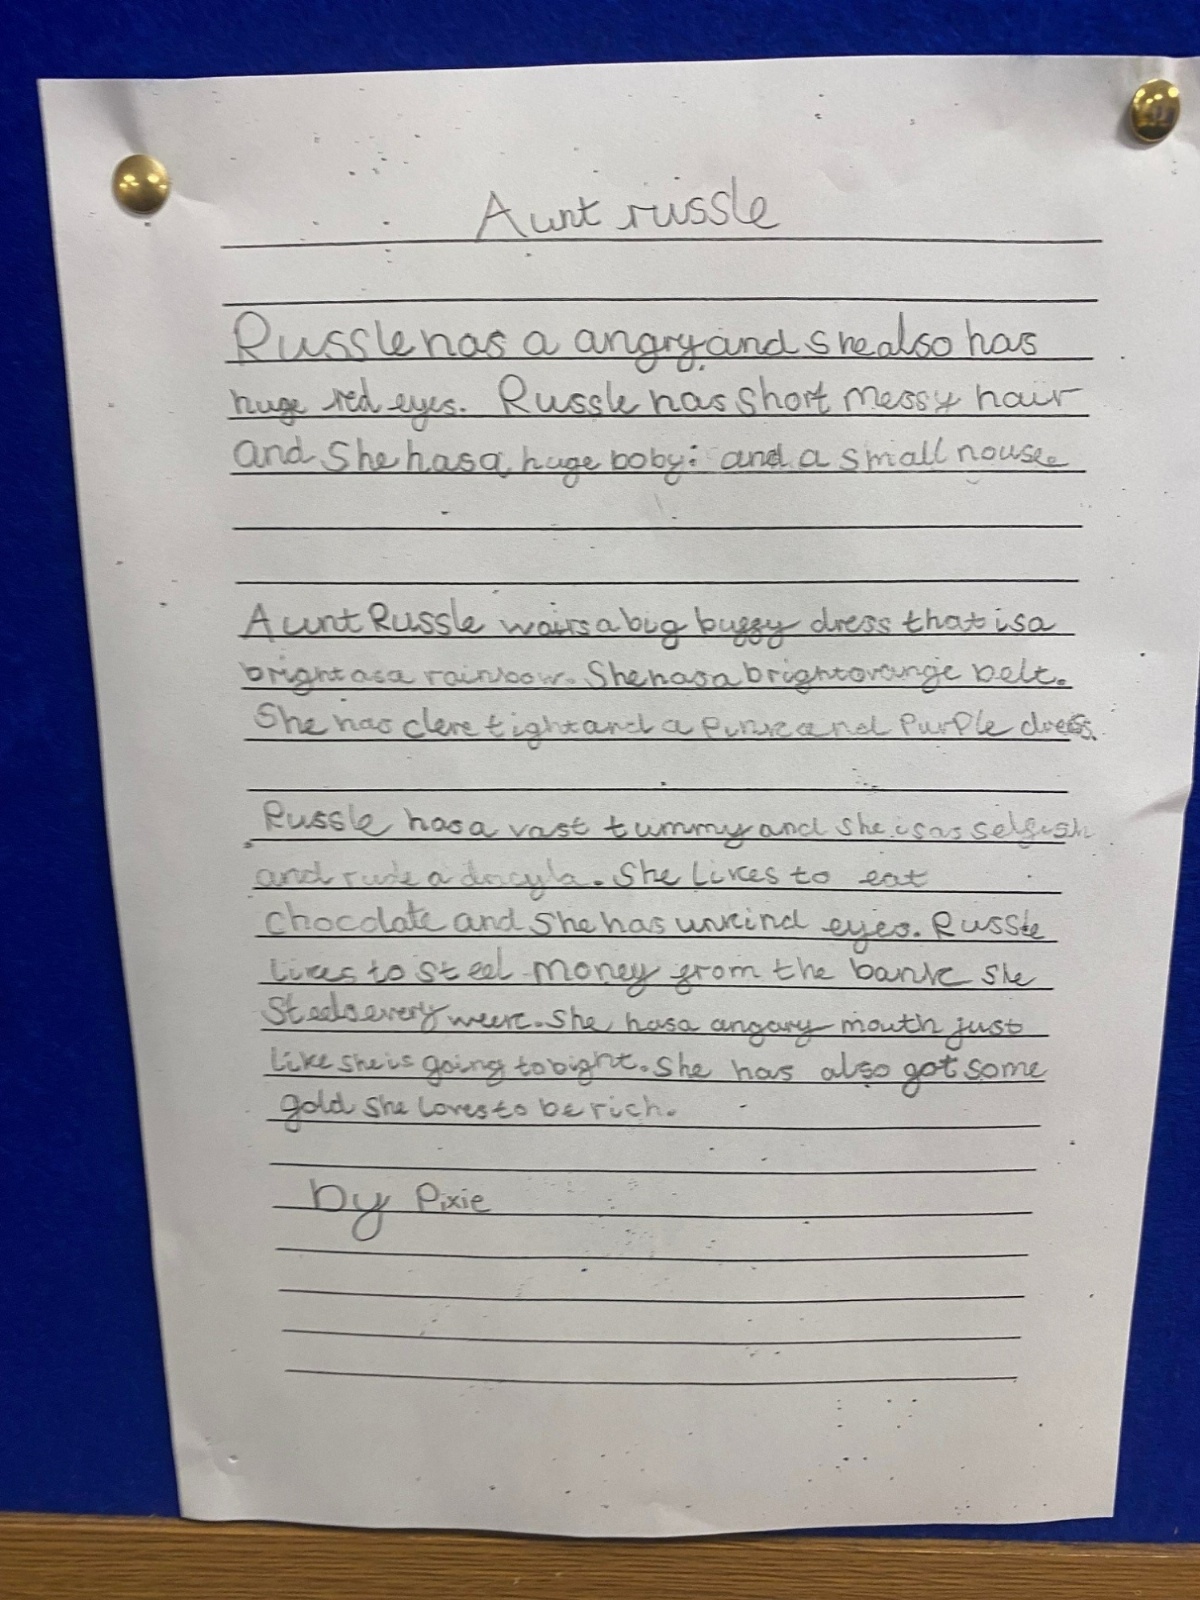 Aunt russle
Russle has a angry and she also has
huge red eyes. Russle has short messy hair
and She has a huge boby: and a small nouse
Aunt Russle wairs a big buggy dress that is a
bright as a rainbow. She has a bright orange belt.
She has clere tight and a pinke and PurPle dress.
Russle has a vast tummy and she is as selfish
and rude a dracyla. She likes to eat
chocolate and She has unkind eyes. Russle
likes to steel money from the bank she
Steels every week. She has a angary mouth just
like she is going to bight. She has also got some
gold she loves to be rich.
by Pixie